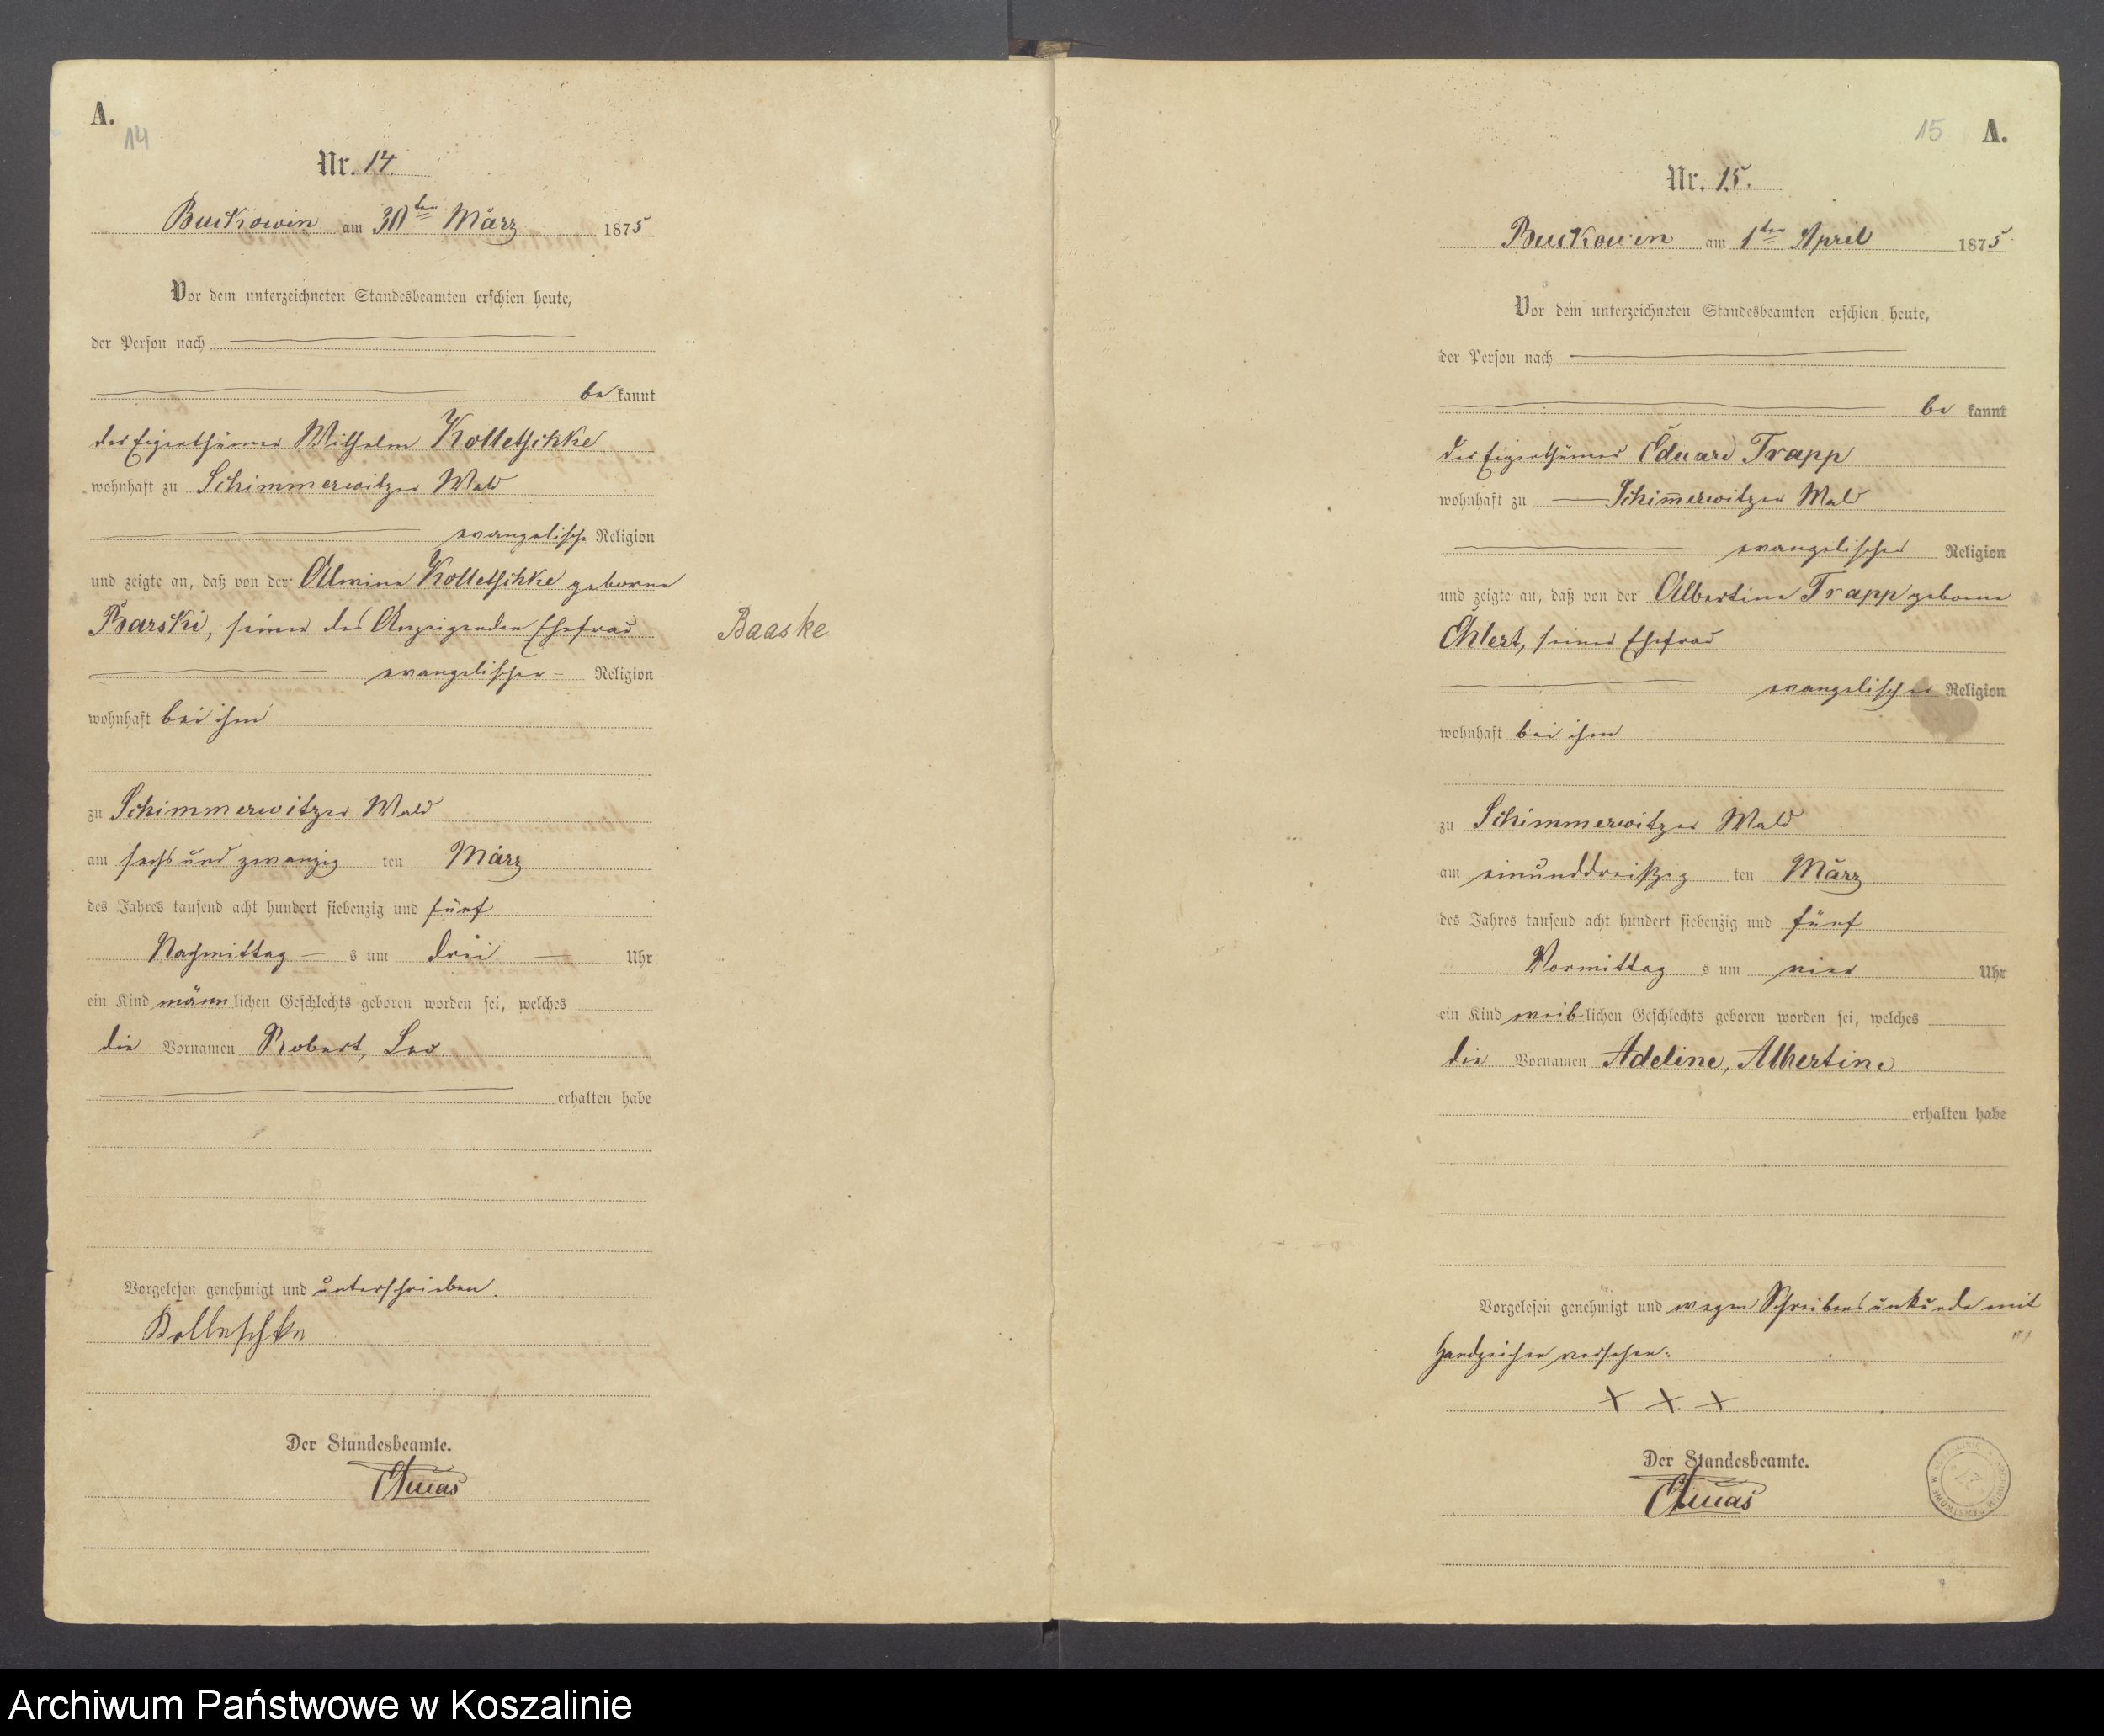 A.
14
Nr. 14.
Buckowin am 30ten März 1875
Vor dem unterzeichneten Standesbeamten erschien heute,
der Person nach
be kannt
der Eigenthümer Wilhelm Kolletschke
wohnhaft zu Schimmerwitzer Wald
evangelische Religion
und zeigte an, daß von der Alwine Kolletschke geborne
Barski, seiner des Anzeigenden Ehefrau
Baaske
evangelischer Religion
wohnhaft bei ihm
zu Schimmerwitzer Wald
am sechs und zwanzig ten März
des Jahres tausend acht hundert siebenzig und fünf
Nachmittag s um drei Uhr
ein Kind männ lichen Geschlechts geboren worden sei, welches
die Vornamen Robert, Leo.
erhalten habe
Vorgelesen genehmigt und unterschrieben.
Kolleschke
Der Standesbeamte.
15
A.
Nr. 15.
Buckowin am 1ten April 1875
Vor dem unterzeichneten Standesbeamten erschien heute,
der Person nach
be kannt
der Eigenthümer Eduard Trapp
wohnhaft zu Schim̅erwitzer Wald
evangelischer Religion
und zeigte an, daß von der Albertine Trapp geborne
Ehlert, seiner Ehefrau
evangelischer Religion
wohnhaft bei ihm
zu Schimmerwitzer Wald
am einunddreißig ten März
des Jahres tausend acht hundert siebenzig und fünf
Vormittag s um vier Uhr
ein Kind weib lichen Geschlechts geboren worden sei, welches
die Vornamen Adeline, Albertine
erhalten habe
Vorgelesen genehmigt und wegen Schreibensunkunde mit
Handzeichen versehen:
X X X
Der Standesbeamte.
Archiwum Państwowe w Koszalinie